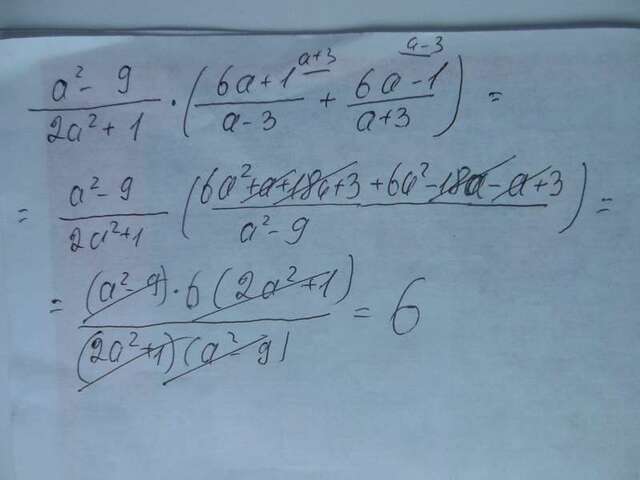 (a² - 9)/(2a² + 1) · ((6a + 1)^(a+3)/(a - 3) + (6a - 1)^(a-3)/(a + 3)) =
= (a² - 9)/(2a² + 1) ((6a² + a + 18a + 3 + 6a² - 18a - a + 3)/(a² - 9)) =
= ((a² - 9) · 6 (2a² + 1))/((2a² + 1)(a² - 9)) = 6